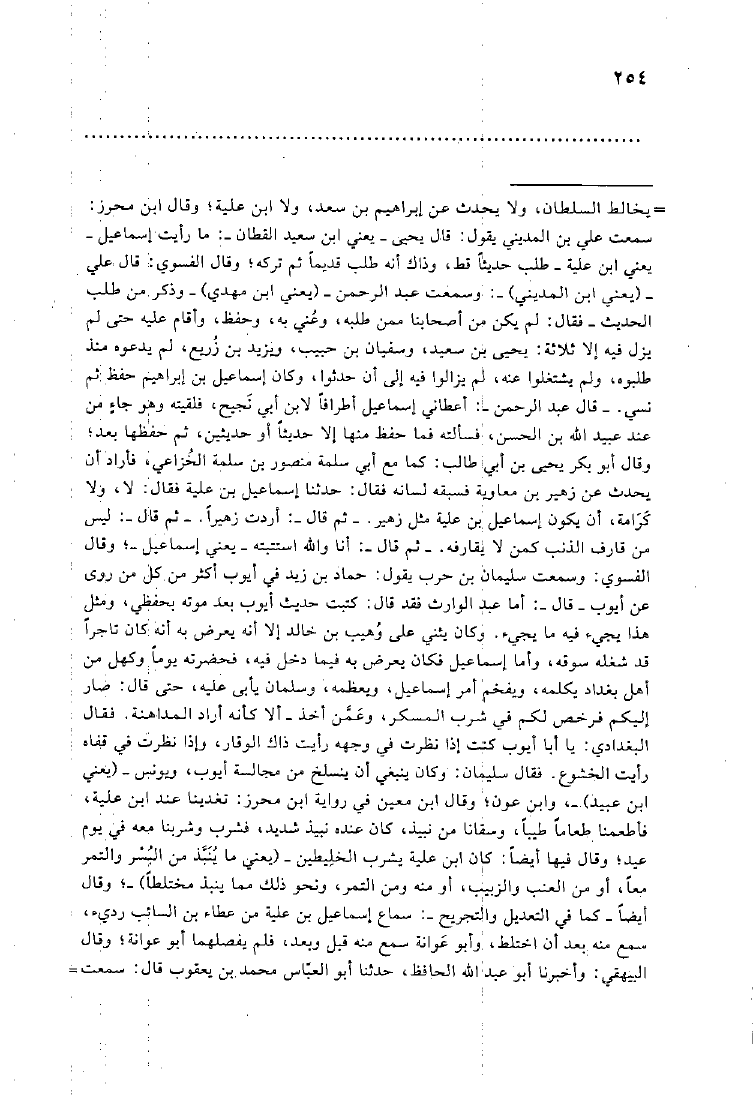 ٢٥٤
= يخالط السلطان، ولا يحدث عن إبراهيم بن سعد، ولا ابن علية؛ وقال ابن محرز:
سمعت علي بن المديني يقول: قال يحيى ـ يعني ابن سعيد القطان ـ: ما رأيت إسماعيل ـ
يعني ابن علية ـ طلب حديثاً قط، وذاك أنه طلب قديماً ثم تركه؛ وقال الفسوي: قال علي
ـ (يعني ابن المديني) ـ: وسمعت عبد الرحمن ـ (يعني ابن مهدي) ـ وذكر من طلب
الحديث ـ فقال: لم يكن من أصحابنا ممن طلبه، وعُني به، وحفظ، وأقام عليه حتى لم
يزل فيه إلا ثلاثة: يحيى بن سعيد، وسفيان بن حبيب، ويزيد بن زُريع، لم يدعوه منذ
طلبوه، ولم يشتغلوا عنه، لم يزالوا فيه إلى أن حدثوا، وكان إسماعيل بن إبراهيم حفظ ثم
نسي. ـ قال عبد الرحمن ـ: أعطاني إسماعيل أطرافاً لابن أبي نَجيح، فلقيته وهو جاءٍ من
عند عبيد الله بن الحسن، فسألته فما حفظ منها إلا حديثاً أو حديثين، ثم حفظها بعد؛
وقال أبو بكر يحيى بن أبي طالب: كما مع أبي سلمة منصور بن سلمة الخُزاعي، فأراد أن
يحدث عن زهير بن معاوية فسبقه لسانه فقال: حدثنا إسماعيل بن علية فقال: لا، ولا
كَرَامة، أن يكون إسماعيل بن علية مثل زهير. ـ ثم قال ـ: أردت زهيراً. ـ ثم قال ـ: ليس
من قارف الذنب كمن لا يقارفه. ـ ثم قال ـ: أنا والله استتبته ـ يعني إسماعيل ـ؛ وقال
الفسوي: وسمعت سليمان بن حرب يقول: حماد بن زيد في أيوب أكثر من كل من روى
عن أيوب ـ قال ـ: أما عبد الوارث فقد قال: كتبت حديث أيوب بعد موته بحفظي، ومثل
هذا يجيء فيه ما يجيء. وكان يثني على وُهيب بن خالد إلا أنه يعرض به أنه كان تاجراً
قد شغله سوقه، وأما إسماعيل فكان يعرض به فيما دخل فيه، فحضرته يوماً وكهل من
أهل بغداد يكلمه، ويفخم أمر إسماعيل، ويعظمه، وسلمان يأبى عليه، حتى قال: صار
إليكم فرخص لكم في شرب المسكر، وعَمَّن أخذ ـ ألا كأنه أراد المداهنة. فقال
البغدادي: يا أبا أيوب كنت إذا نظرت في وجهه رأيت ذاك الوقار، وإذا نظرت في قفاه
رأيت الخشوع. فقال سليمان: وكان ينبغي أن ينسلخ من مجالسة أيوب، ويونس ـ (يعني
ابن عبيد) ـ، وابن عون؛ وقال ابن معين في رواية ابن محرز: تغدينا عند ابن علية،
فأطعمنا طعاماً طيباً، وسقانا من نبيذ، كان عنده نبيذ شديد، فشرب وشربنا معه في يوم
عيد؛ وقال فيها أيضاً: كان ابن علية يشرب الخليطين ـ (يعني ما يُنَبَّذ من البُسْر والتمر
معاً، أو من العنب والزبيب، أو منه ومن التمر، ونحو ذلك مما ينبذ مختلطاً) ـ؛ وقال
أيضاً ـ كما في التعديل والتجريح ـ: سماع إسماعيل بن علية من عطاء بن السائب رديء،
سمع منه بعد أن اختلط، وأبو عَوانة سمع منه قبل وبعد، فلم يفصلهما أبو عوانة؛ وقال
البيهقي: وأخبرنا أبو عبد الله الحافظ، حدثنا أبو العبّاس محمد بن يعقوب قال: سمعت =